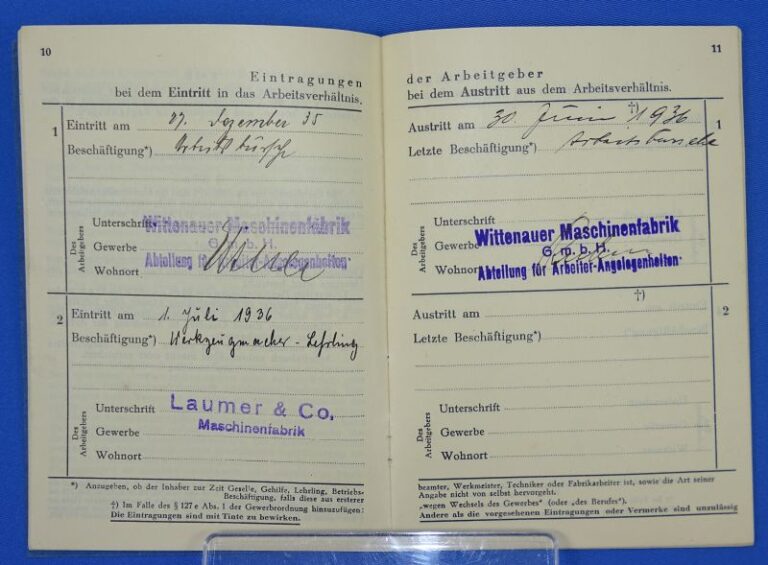 10
Eintragungen
bei dem Eintritt in das Arbeitsverhältnis.
1 Eintritt am Dezember 35
Beschäftigung*) Arbeitsbursche
Des Arbeitgebers
Unterschrift
Gewerbe
Wohnort
Wittenauer Maschinenfabrik
G.m.b.H.
Abteilung für Arbeiter-Angelegenheiten
2 Eintritt am 1. Juli 1936
Beschäftigung*) Werkzeugmacher - Lehrling
Des Arbeitgebers
Unterschrift
Gewerbe
Wohnort
Laumer & Co.
Maschinenfabrik
*) Anzugeben, ob der Inhaber zur Zeit Geselle, Gehilfe, Lehrling, Betriebs-
Beschäftigung, falls diese aus ersterer
†) Im Falle des § 127e Abs. 1 der Gewerbeordnung hinzuzufügen:
Die Eintragungen sind mit Tinte zu bewirken.
11
der Arbeitgeber
bei dem Austritt aus dem Arbeitsverhältnis.
†)
Austritt am 30. Juni 1936 1
Letzte Beschäftigung*) Arbeitsbursche
Des Arbeitgebers
Unterschrift
Gewerbe
Wohnort
Wittenauer Maschinenfabrik
G.m.b.H.
Abteilung für Arbeiter-Angelegenheiten
†)
Austritt am 2
Letzte Beschäftigung*)
Des Arbeitgebers
Unterschrift
Gewerbe
Wohnort
beamter, Werkmeister, Techniker oder Fabrikarbeiter ist, sowie die Art seiner
Angabe nicht von selbst hervorgeht.
„wegen Wechsels des Gewerbes" (oder „des Berufes").
Andere als die vorgesehenen Eintragungen oder Vermerke sind unzulässig